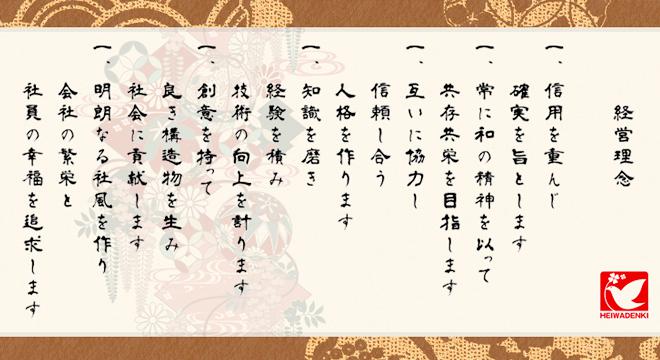 経営理念
一、信用を重んじ
確実を旨とします
一、常に和の精神を以って
共存共栄を目指します
一、互いに協力し
信頼し合う
人格を作ります
一、知識を磨き
経験を積み
技術の向上を計ります
一、創意を持って
良き構造物を生み
社会に貢献します
一、明朗なる社風を作り
会社の繁栄と
社員の幸福を追求します
HEIWADENKI